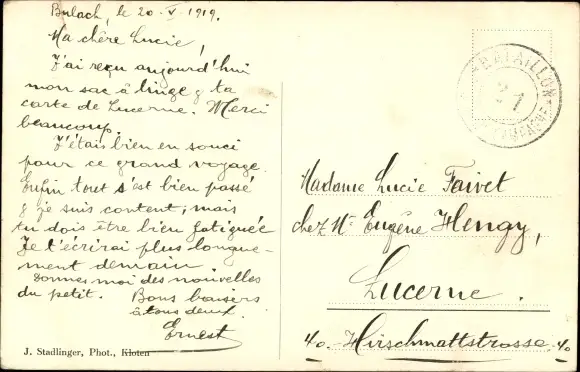 Bulach, le 20-V-1919.
Ma chère Lucie,
J'ai reçu aujourd'hui
mon sac à linge & ta
carte de Lucerne. Merci
beaucoup.
J'étais bien en souci
pour ce grand voyage.
Enfin tout s'est bien passé
& je suis content, mais
tu dois être bien fatiguée
Je t'écrirai plus longue-
ment demain
Donnes moi des nouvelles
du petit. Bons baisers
à tous deux.
Ernest
J. Stadlinger, Phot., Kloten
BATAILLON
21
Madame Lucie Faivet
chez Mr Eugène Hengy,
Lucerne.
40 - Hirschmattstrosse 40